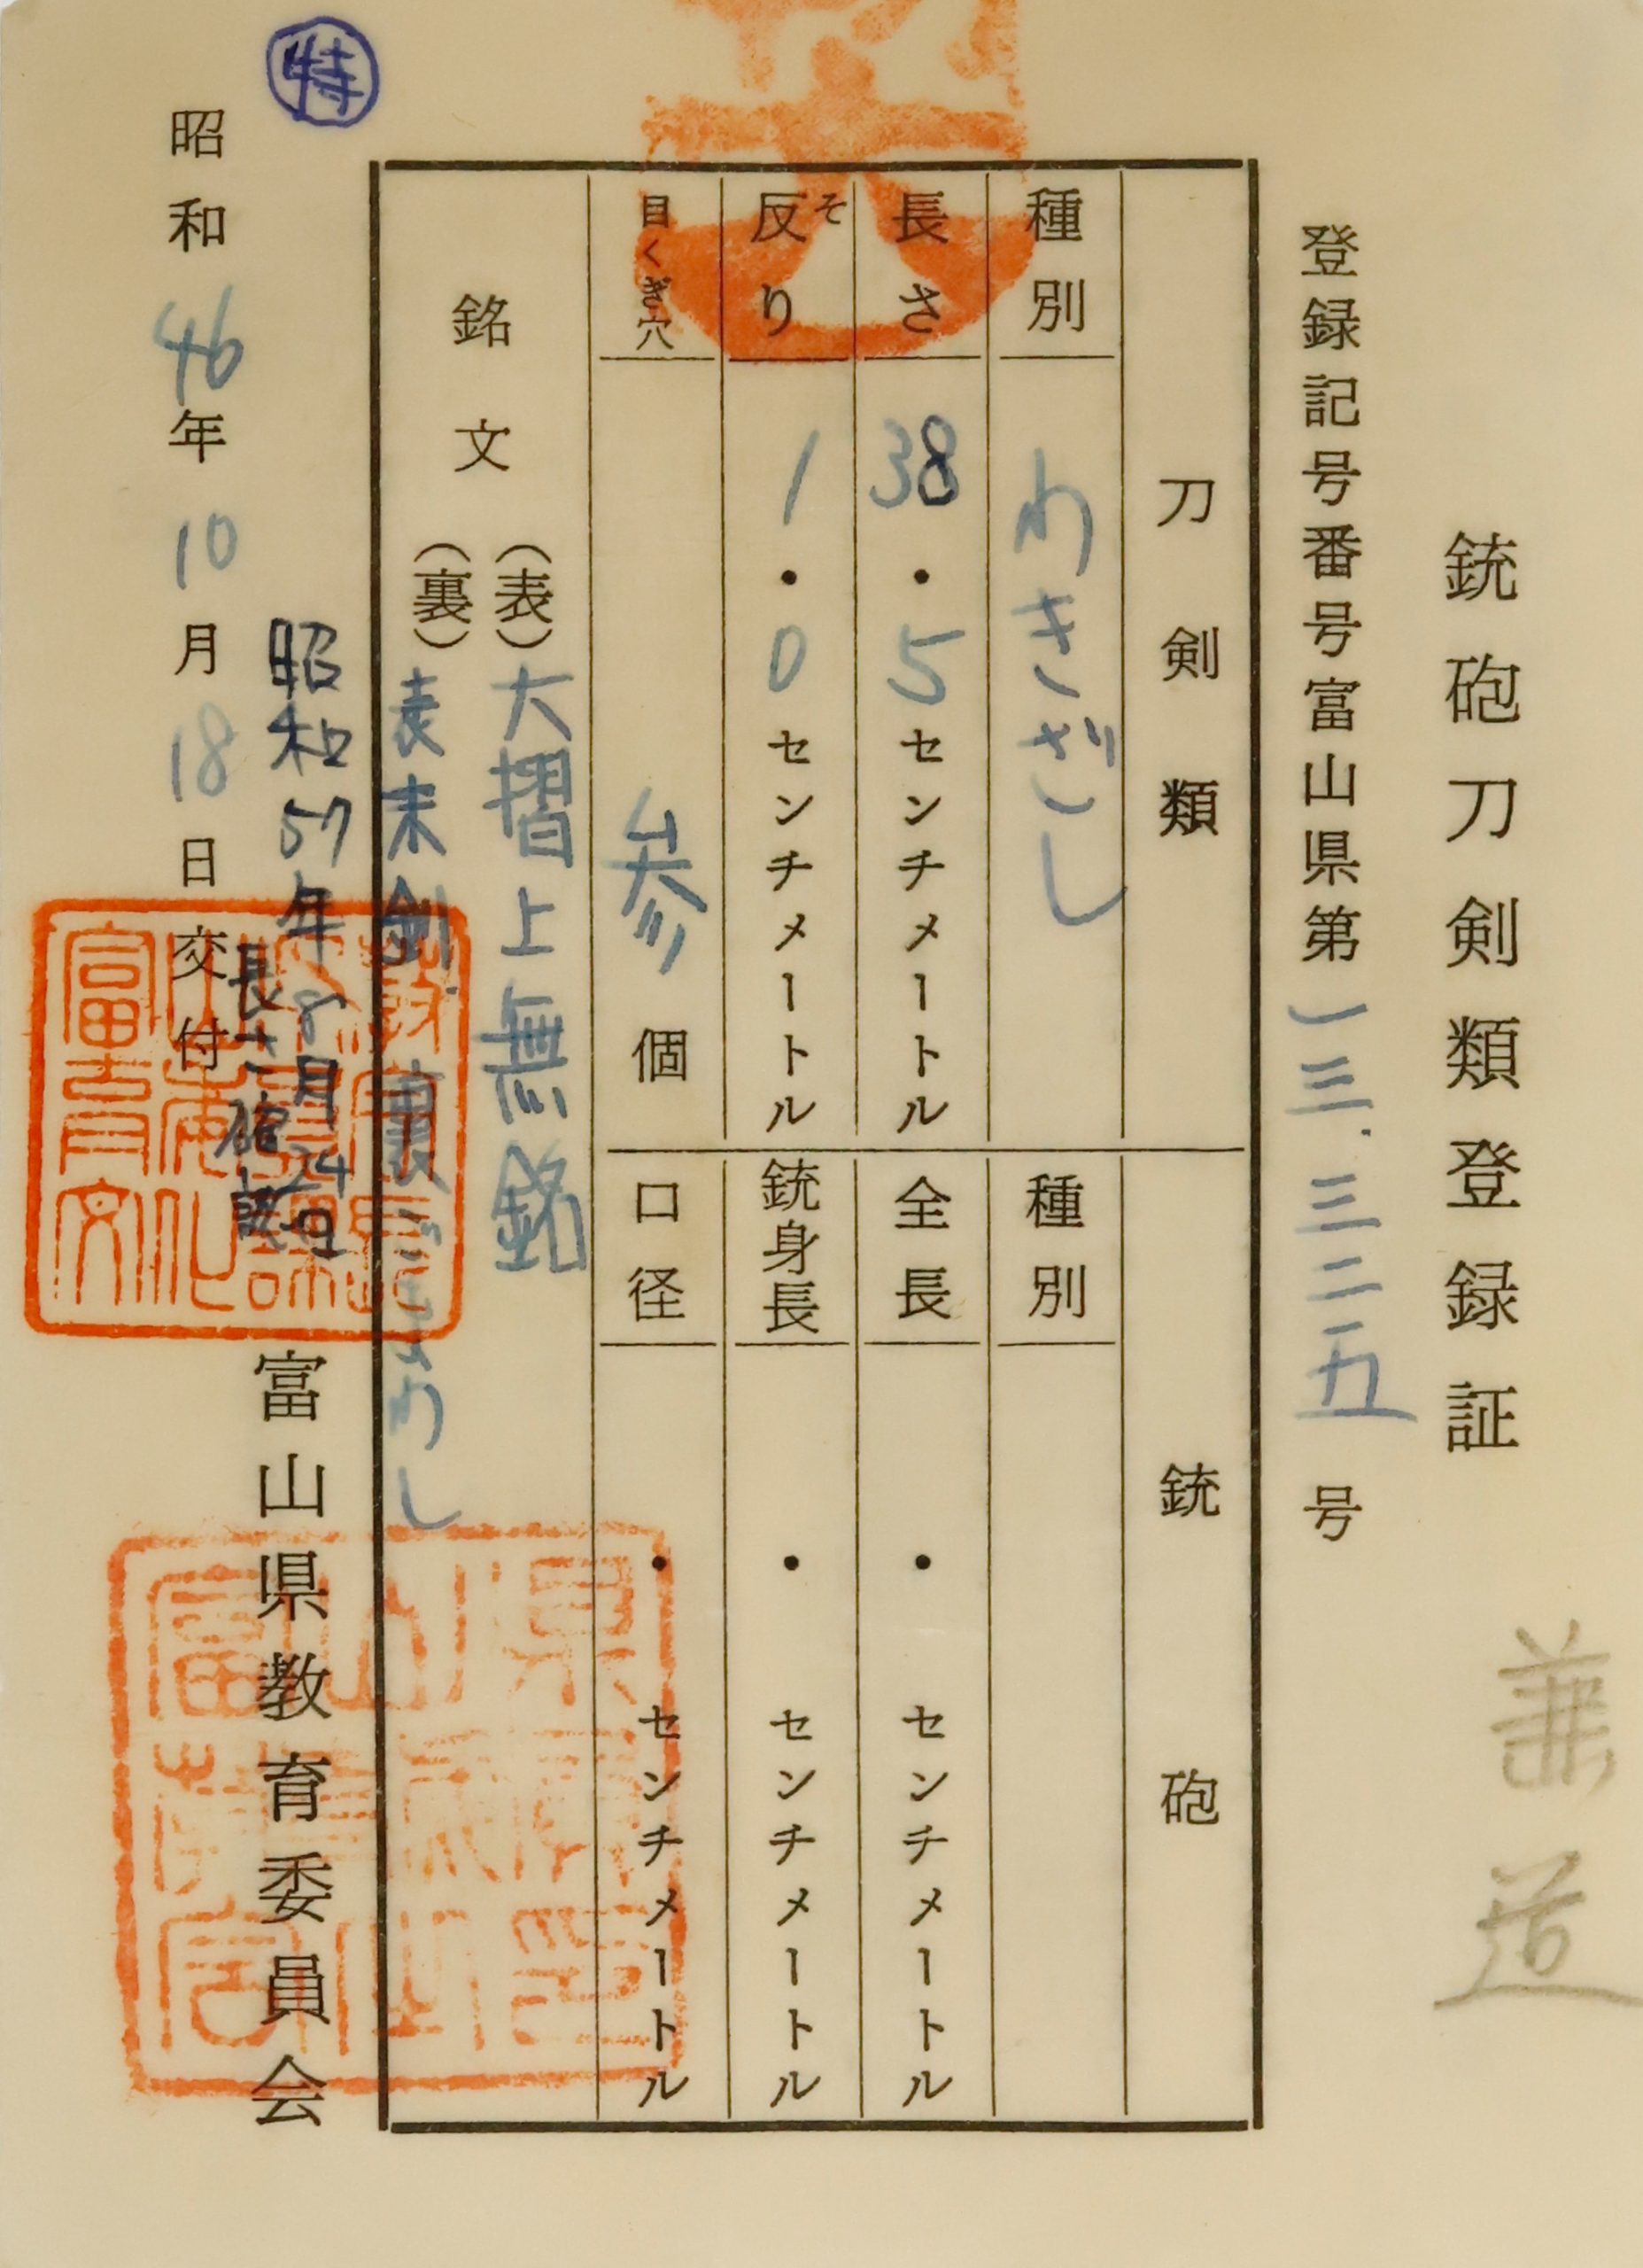 銃砲刀剣類登録証
兼道
登録記号番号富山県第一三三二五号
刀剣類
種別 わきざし
長さ 38.5センチメートル
反り 1.0センチメートル
そ
目くぎ穴 参個
銘文
(表)大摺上無銘
(裏)表末剣 裏ごまわし
銃砲
種別
全長 ・ センチメートル
銃身長 ・ センチメートル
口径 ・ センチメートル
特
昭和57年8月24日
長さ確認
昭和46年10月18日交付
富山県教育委員会